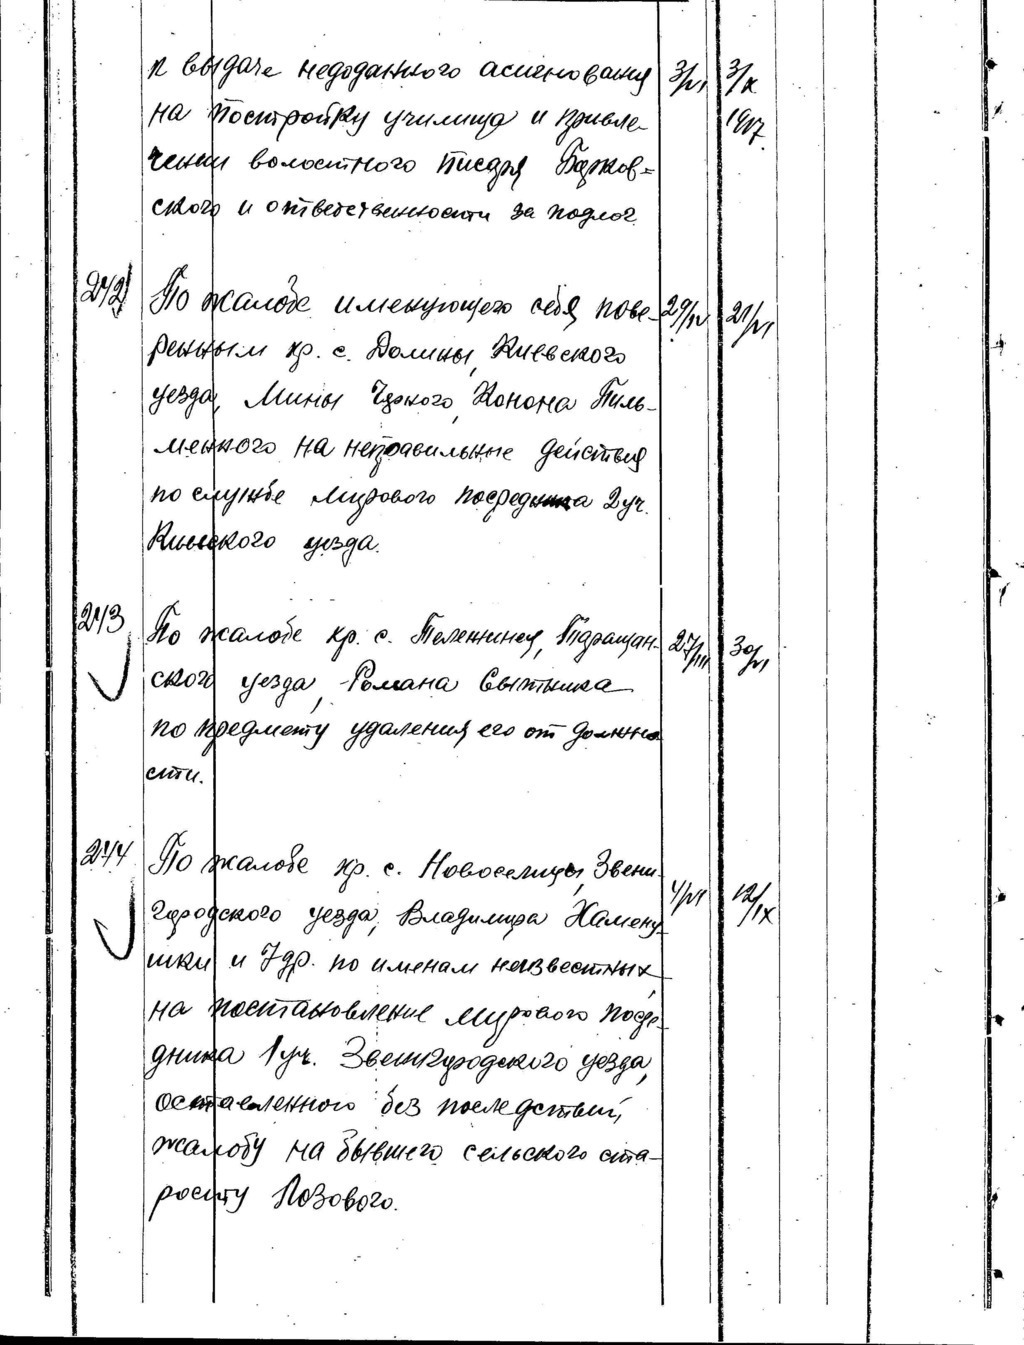 к выдаче недоданного асигнования 3/VI 3/X
на постройку училища и привле- 1907.
чении волостного писаря
ского и ответственности за подлог.
242 По жалобе именующего себя пове- 29/IV 21/VI
ренным кр. с. Долины, Киевского
уезда, Мины Чёрного, Конона Пиль-
менного на неправильные действия
по службе мирового посредника 2 уч.
Киевского уезда.
243 По жалобе кр. с. Теленинец, Таращан- 27/III 30/VI
ского уезда, Романа Сытника
по предмету удаления его от должно
сти.
244 По жалобе кр. с. Новоселицы, Звени-
городского уезда, Владимира Хамену- 4/VI 12/IX
шки и 7 др. по именам неизвестных,
на постановление мирового посре-
дника 1 уч. Звенигородского уезда,
оставленного без последствий,
жалобу на бывшего сельского ста-
росту Лозового.